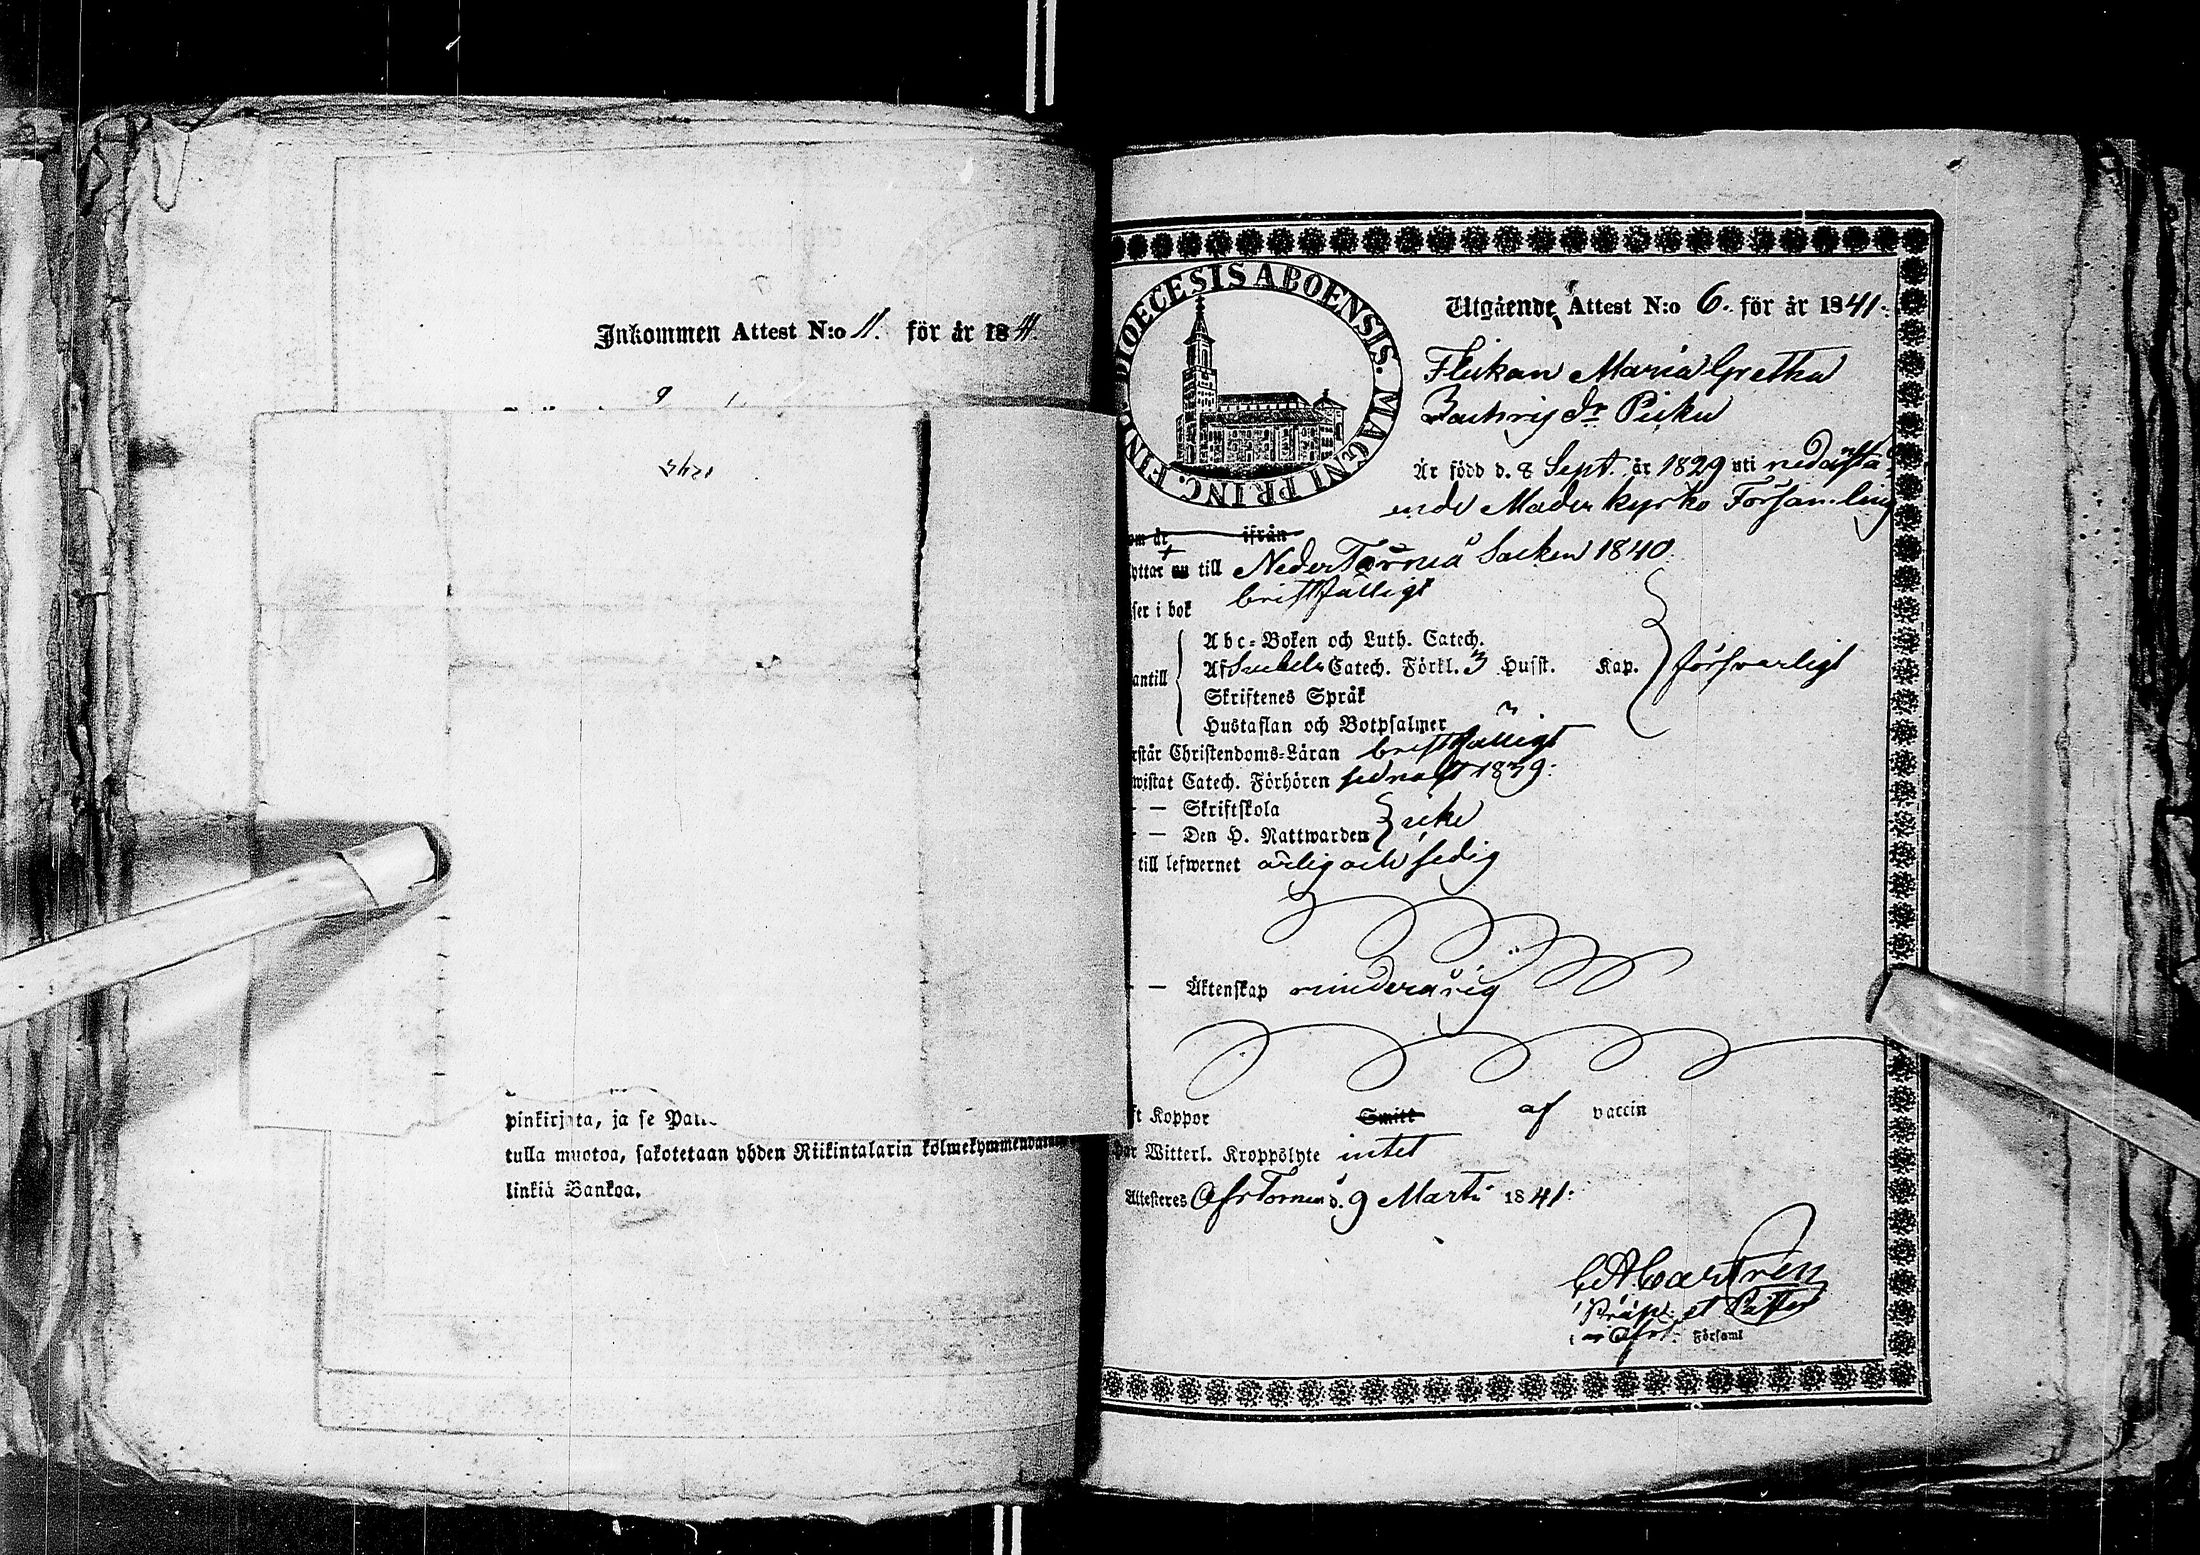 Inkommen Attest N:o 11. för år 1841.
pinkirjota, ja se
tulla muotoa, sakotetaan yhden Riikintalarin kolmekymmendä
linkiä Bankoa.
DIOECESIS ABOENSIS. MAGNI PRINC. FINL.
Utgående Attest N:o 6. för år 1841.
Flickan Maria Gretha
Zachris dr
Är född d. 8 Sept. år 1829 uti nedanstå
ende Moderkyrko Församling
om år ifrån
yttar nu till Neder Torneå Socken 1840.
ser i bok bristfälligt
Abc-Boken och Luth. Catech.
antill Af Catech. Förkl. 3 Husst. Kap. försvarligt
Skriftenes Språk
Hustaflan och Botpsalmer
rstår Christendoms-Läran bristfälligt
wistat Catech. Förhören sednast 1839.
— Skriftskola
— Den H. Nattwarden icke
till lefwernet ärlig och sedig
— Äktenskap minderårig
ft Koppor Smitt af vaccin
har Witterl. Kroppslyte intet
Attesteres Öfv Torneå d. 9 Martii 1841.
Castrén
Präp. et Pastor
i Öfv. Förfaml